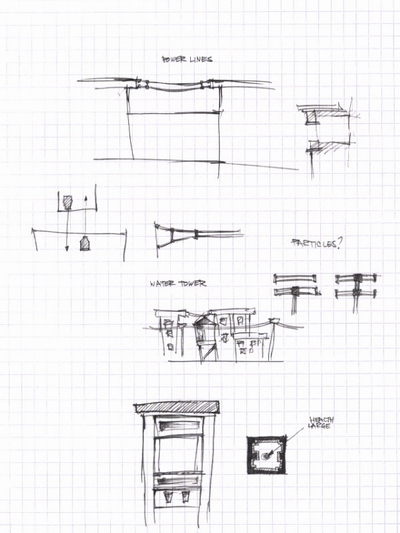 POWER LINES
PARTICLES?
WATER TOWER
HEALTH
LARGE